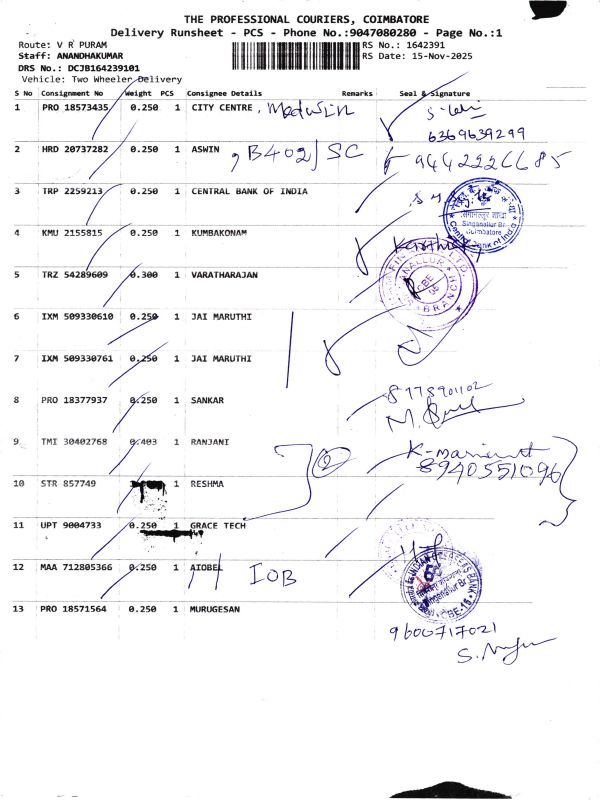 THE PROFESSIONAL COURIERS, COIMBATORE
Delivery Runsheet - PCS - Phone No.:9047080280 - Page No.:1
Route: V R PURAM RS No.: 1642391
Staff: ANANDHAKUMAR RS Date: 15-Nov-2025
DRS No.: DCJB164239101
Vehicle: Two Wheeler Delivery
S No Consignment No Weight PCS Consignee Details Remarks Seal & Signature
1 PRO 18573435 0.250 1 CITY CENTRE, Medwin
6369639299
2 HRD 20737282 0.250 1 ASWIN, B402/SC 9442226685
3 TRP 2259213 0.250 1 CENTRAL BANK OF INDIA
Singanallur Br.
Coimbatore
Central Bank of India
4 KMU 2155815 0.250 1 KUMBAKONAM
Karthick
5 TRZ 54289609 0.300 1 VARATHARAJAN
6 IXM 509330610 0.250 1 JAI MARUTHI
7 IXM 509330761 0.250 1 JAI MARUTHI
8 PRO 18377937 0.250 1 SANKAR
9 TMI 30402768 0.403 1 RANJANI
2
8940551096
10 STR 857749 1 RESHMA
11 UPT 9004733 0.250 1 GRACE TECH
12 MAA 712805366 0.250 1 AIOBEL IOB
INDIAN OVERSEAS BANK
Singanallur Br
CBE-15
13 PRO 18571564 0.250 1 MURUGESAN
9600717021